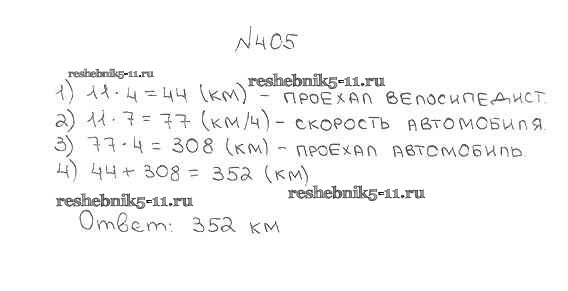 №405
reshebnik5-11.ru
reshebnik5-11.ru
1) 11 · 4 = 44 (км) - проехал велосипедист.
2) 11 · 7 = 77 (км/ч) - скорость автомобиля.
3) 77 · 4 = 308 (км) - проехал автомобиль.
4) 44 + 308 = 352 (км)
reshebnik5-11.ru
reshebnik5-11.ru
Ответ: 352 км